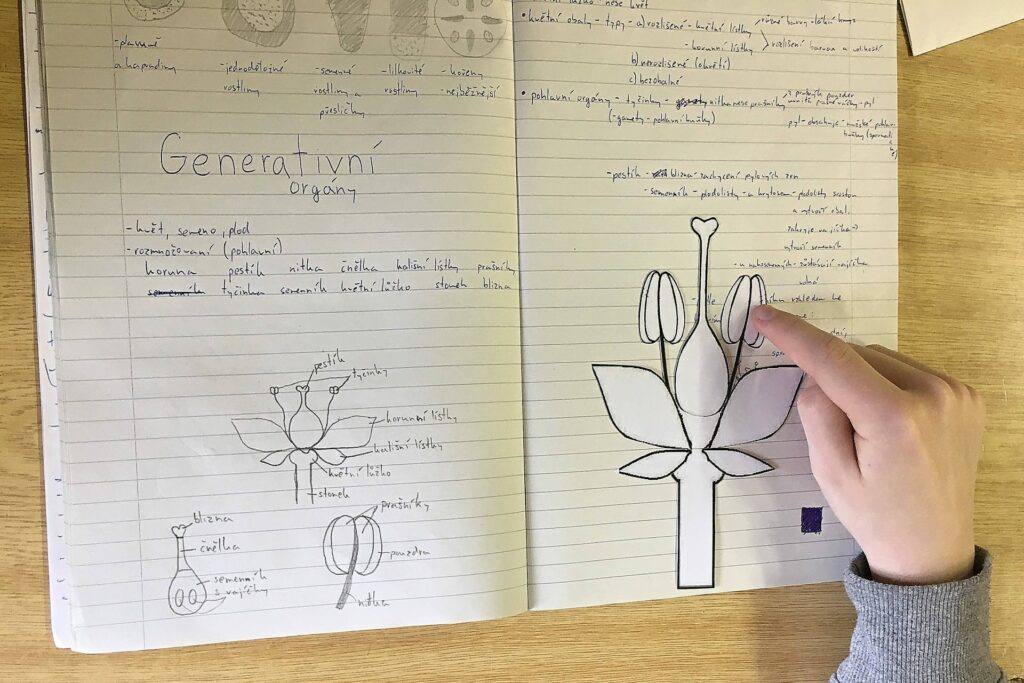 -plavuně
a kapradiny
-jednoděložné
rostliny
-semenné
rostliny a
přesličky
-lilkovité
rostliny
-kořeny
-nejběžnější
Generativní
orgány
-květ, semeno, plod
-rozmnožovaní (pohlavní)
koruna pestík nitka čnělka kališní lístky prašníky
semenník tyčinka semenník květní lůžko stonek blizna
pestík
tyčinky
korunní lístky
kališní lístky
květní lůžko
stonek
blizna
čnělka
semenník
s vajíčky
prašníky
pouzdra
nitka
lůžko nese květ
• květní obaly - typy - a) rozlišené - květní lístky
- korunní lístky
rozlišení barvou a velikostí
b) nerozlišené (okvětí)
c) bezobalné
• pohlavní orgány - tyčinky - nitka nese prašníky
(-gamety - pohlavní buňky)
pyl - obsahuje - mužské pohlavní
buňky
-pestík - blizna - zachycení pylových zrn
-semenník - plodolisty - u krytosem - plodolisty srostou
a vytvoří obal
vytvoří semenník
- u nahosemenných - zůstávají vajíčka
volná